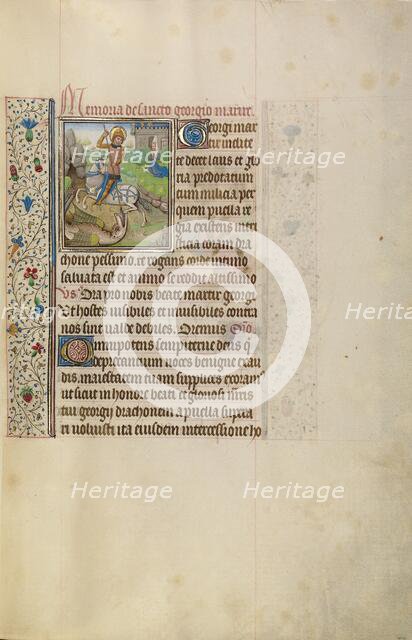 Memoria de sancto georgio martire.
Georgi mar
tir inclite
te decet laus et glo
ria predotatum
eum milicia per
quem puella re
gia existens in tri
sticia coram dra
chone pessimo. et rogans corde intimo
salvata est et animo se reddit altissimo
Vs Ora pro nobis beate martir georgi
Et hostes visibiles et invisibiles contra
nos sint valde debiles. Oremus Oro
Omnipotens sempiterne deus q
deprecantium voces benigne exau
dis. maiestatem tuam supplices exoram
ut sicut in honore beati et gloriosi mris
tui georgij drachonem a puella supera
ri voluisti ita eiusdem intercessione ho
Heritage
Heritage
Heritage
Heritage
Heritage
Heritage
Heritage
Heritage